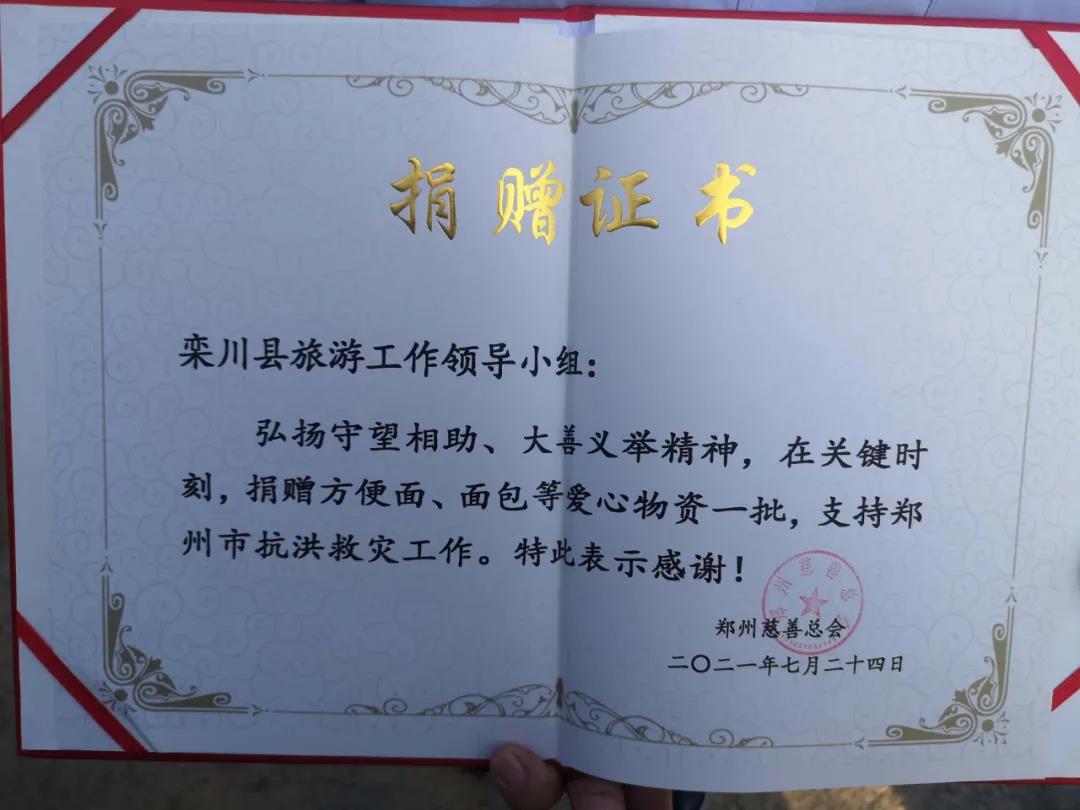 捐赠证书
栾川县旅游工作领导小组：
弘扬守望相助、大善义举精神，在关键时
刻，捐赠方便面、面包等爱心物资一批，支持郑
州市抗洪救灾工作。特此表示感谢！
郑州慈善总会
二〇二一年七月二十四日